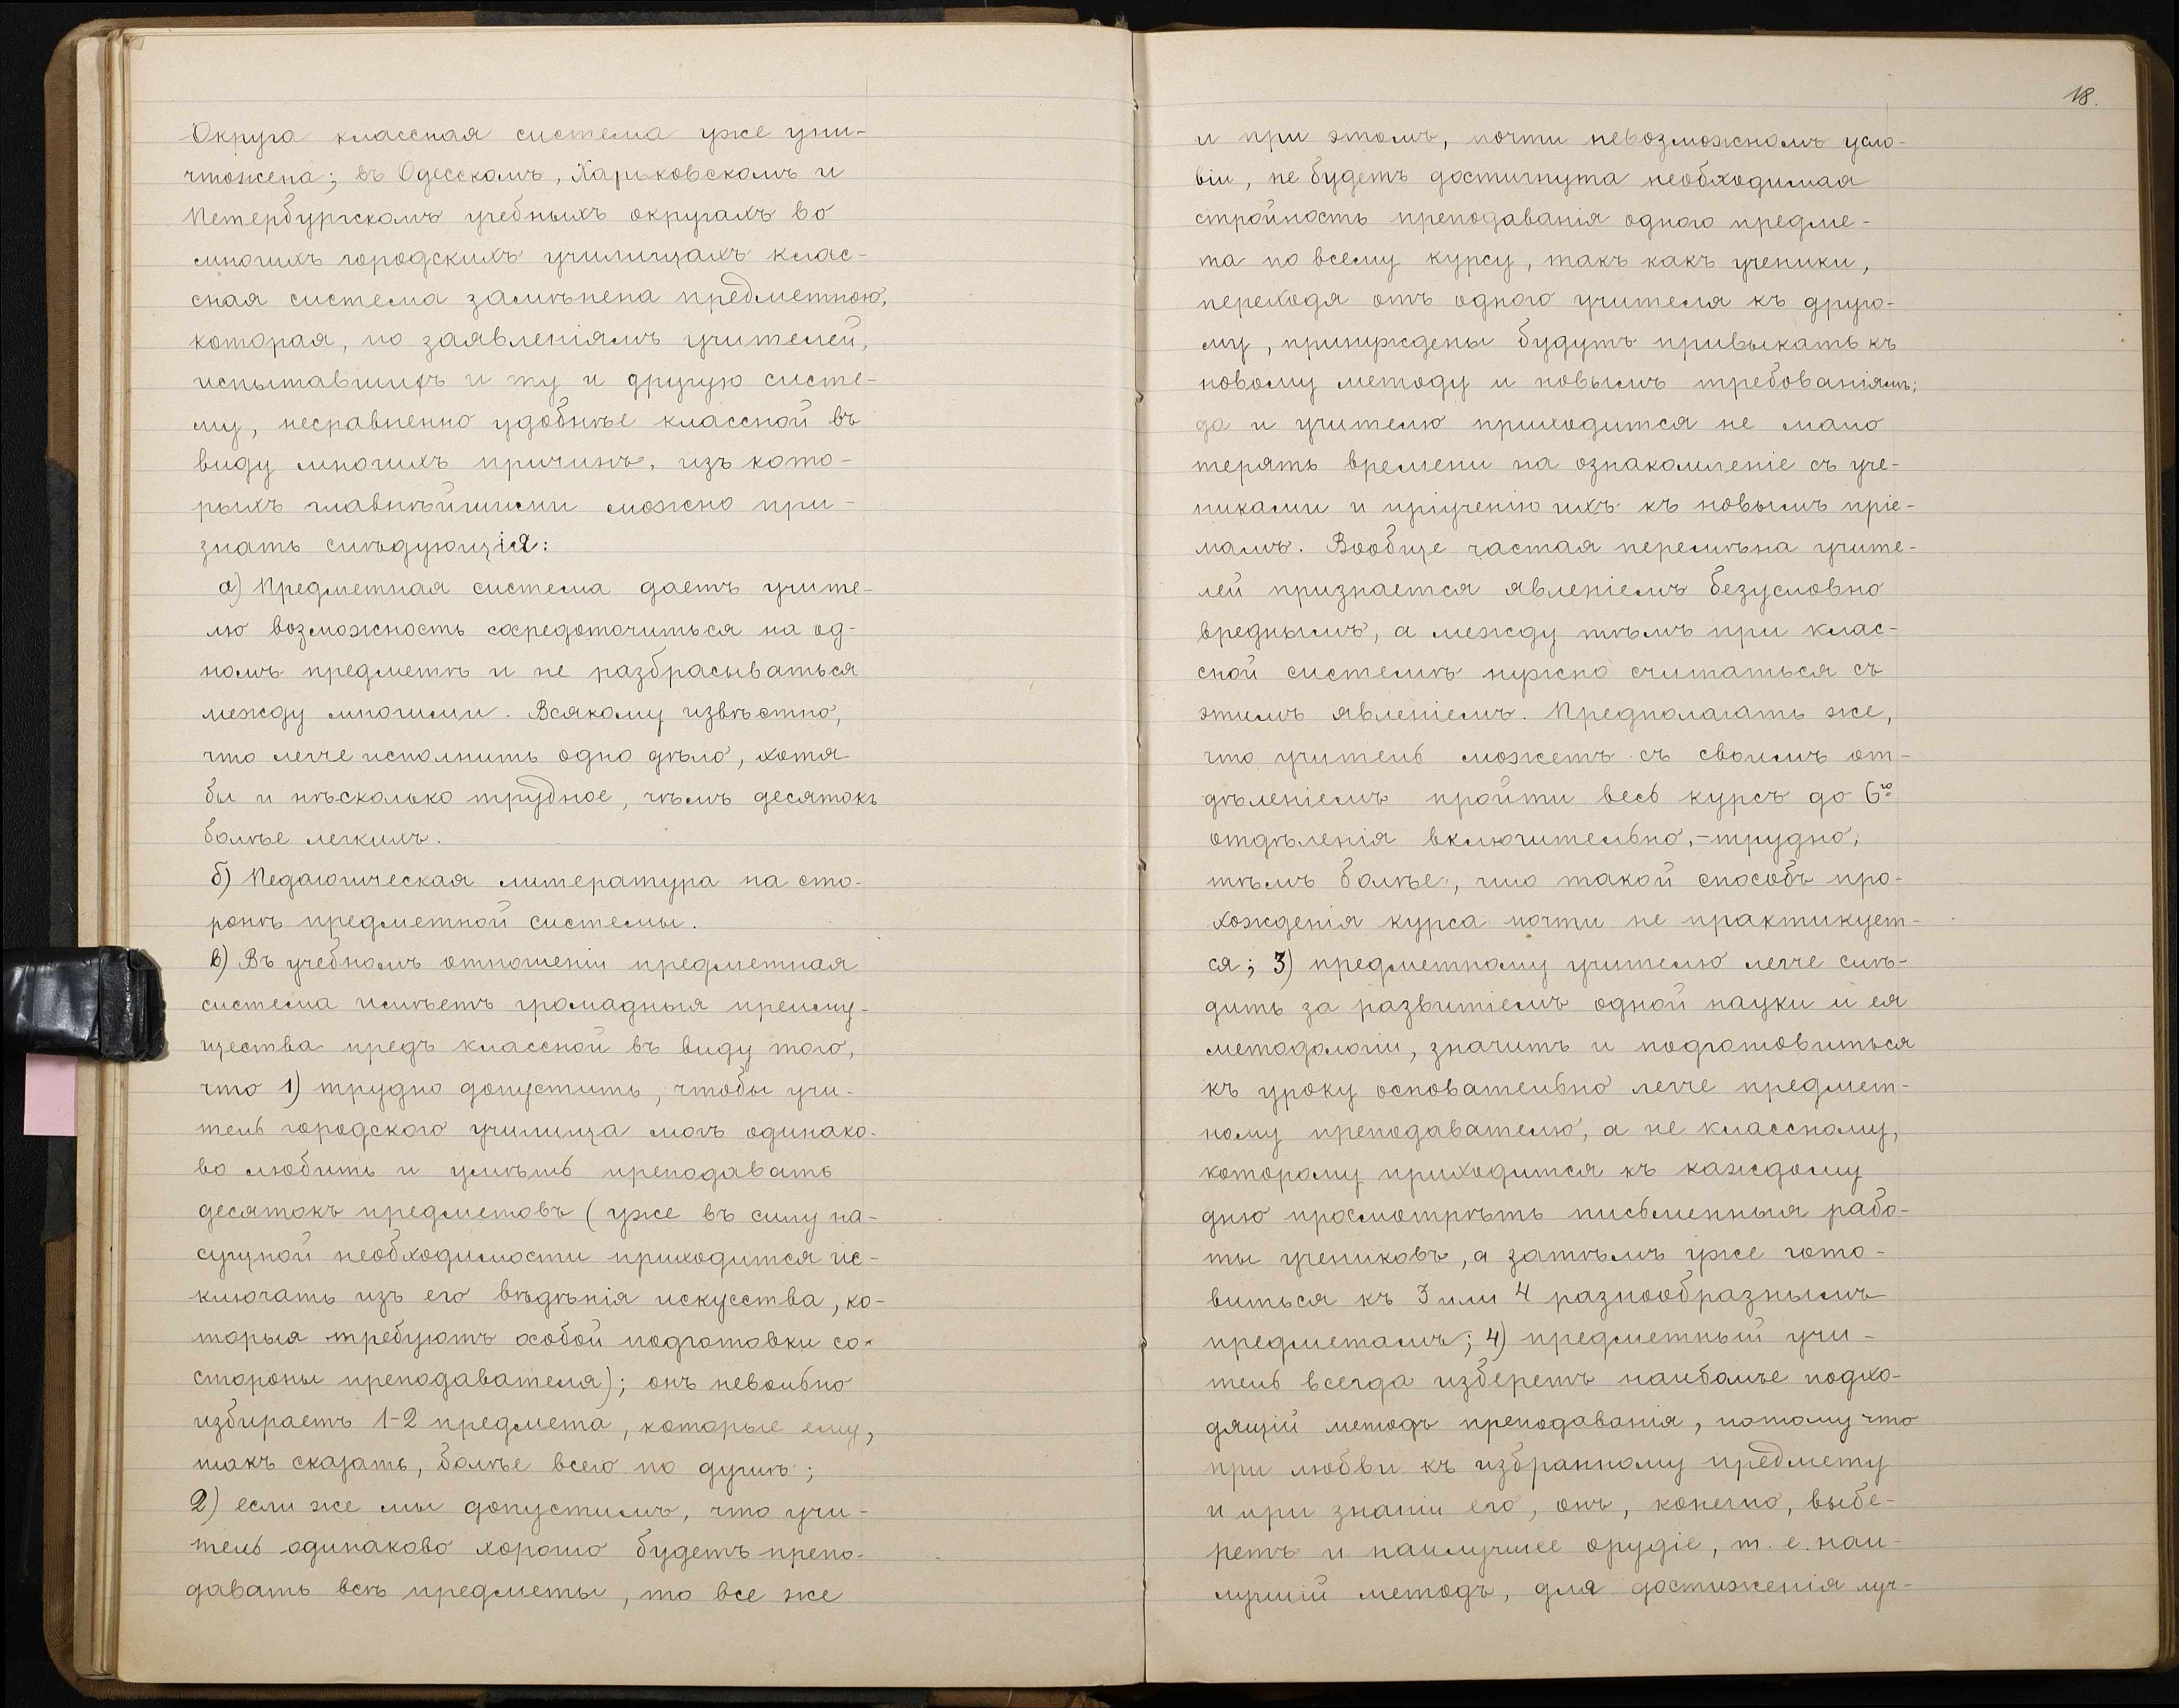 Округа классная система уже уни-
чтожена; въ Одесскомъ, Харьковскомъ и
Петербургскомъ учебныхъ округахъ во
многихъ городскихъ училищахъ клас-
сная система замѣнена предметною,
которая, по заявленіямъ учителей,
испытавшихъ и ту и другую систе-
му, несравненно удобнѣе классной въ
виду многихъ причинъ, изъ кото-
рыхъ главнѣйшими можно при-
знать слѣдующія:
а) Предметная система даетъ учите-
лю возможность сосредоточиться на од-
номъ предметѣ и не разбрасываться
между многими. Всякому извѣстно,
что легче исполнить одно дѣло, хотя
бы и нѣсколько трудное, чѣмъ десятокъ
болѣе легкихъ.
б) Педагогическая литература на сто-
ронѣ предметной системы.
в) Въ учебномъ отношеніи предметная
система имѣетъ громадныя преиму-
щества предъ классной въ виду того,
что 1) трудно допустить, чтобы учи-
тель городского училища могъ одинако-
во любить и умѣть преподавать
десятокъ предметовъ (уже въ силу на-
сущной необходимости приходится ис-
ключать изъ его вѣдѣнія искусства, ко-
торыя требуютъ особой подготовки со
стороны преподавателя); онъ невольно
избираетъ 1-2 предмета, которые ему,
такъ сказать, болѣе всего по душѣ;
2) если же мы допустимъ, что учи-
тель одинаково хорошо будетъ препо-
давать всѣ предметы, то все же
18.
и при этомъ, почти невозможномъ усло-
віи, не будетъ достигнута необходимая
стройность преподаванія одного предме-
та по всему курсу, такъ какъ ученики,
переходя отъ одного учителя къ друго-
му, принуждены будутъ привыкать къ
новому методу и новымъ требованіямъ;
да и учителю приходится не мало
терять времени на ознакомленіе съ уче-
никами и пріученію ихъ къ новымъ пріе-
мамъ. Вообще частая перемѣна учите-
лей признается явленіемъ безусловно
вреднымъ, а между тѣмъ при клас-
сной системѣ нужно считаться съ
этимъ явленіемъ. Предполагать же,
что учитель можетъ съ своимъ от-
дѣленіемъ пройти весь курсъ до 6го
отдѣленія включительно,-трудно,
тѣмъ болѣе, что такой способъ про-
хожденія курса почти не практикует-
ся; 3) предметному учителю легче слѣ-
дить за развитіемъ одной науки и ея
методологіи, значитъ и подготовиться
къ уроку основательно легче предмет-
ному преподавателю, а не классному,
которому приходится къ каждому
дню просмотрѣть письменныя рабо-
ты учениковъ, а затѣмъ уже гото-
виться къ 3 или 4 разнообразнымъ
предметамъ; 4) предметный учи-
тель всегда изберетъ наиболѣе подхо-
дящій методъ преподаванія, потому что
при любви къ избранному предмету
и при знаніи его, онъ, конечно, выбе-
ретъ и наилучшее орудіе, т. е. наи-
лучшій методъ, для достиженія луч-